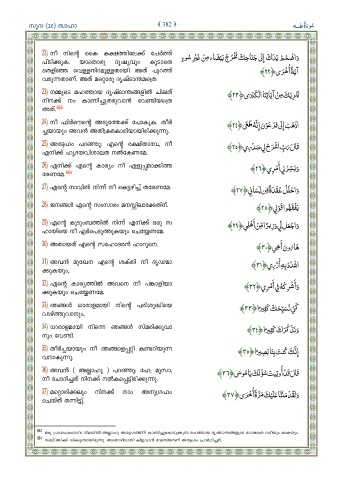 സൂറ (20) ത്വാഹാ
﴾ 382 ﴿
سُورَةُ طه
22) നീ നിന്റെ കൈ കക്ഷത്തിലേക്ക് ചേർത്ത്
പിടിക്കുക. യാതൊരു ദൂഷ്യവും കൂടാതെ
തെളിഞ്ഞ വെള്ളനിറമുള്ളതായി അത് പുറത്ത്
വരുന്നതാണ്. അത് മറ്റൊരു ദൃഷ്ടാന്തമത്രെ.
وَاضْمُمْ يَدَكَ إِلَىٰ جَنَاحِكَ تَخْرُجْ بَيْضَاءَ مِنْ غَيْرِ سُوءٍ
آيَةً أُخْرَىٰ ﴿٢٢﴾
23) നമ്മുടെ മഹത്തായ ദൃഷ്ടാന്തങ്ങളിൽ ചിലത്
നിനക്ക് നാം കാണിച്ചുതരുവാൻ വേണ്ടിയത്രെ
അത്.
لِنُرِيَكَ مِنْ آيَاتِنَا الْكُبْرَى ﴿٢٣﴾
24) നീ ഫിർഔന്റെ അടുത്തേക്ക് പോകുക. തീർ
ച്ചയായും അവൻ അതിക്രമകാരിയായിരിക്കുന്നു.
اذْهَبْ إِلَىٰ فِرْعَوْنَ إِنَّهُ طَغَىٰ ﴿٢٤﴾
25) അദ്ദേഹം പറഞ്ഞു: എന്റെ രക്ഷിതാവേ, നീ
എനിക്ക് ഹൃദയവിശാലത നൽകേണമേ.
قَالَ رَبِّ اشْرَحْ لِي صَدْرِي ﴿٢٥﴾
26) എനിക്ക് എന്റെ കാര്യം നീ എളുപ്പമാക്കിത്ത
രേണമേ.
وَيَسِّرْ لِي أَمْرِي ﴿٢٦﴾
27) എന്റെ നാവിൽ നിന്ന് നീ കെട്ടഴിച്ച് തരേണമേ.
وَاحْلُلْ عُقْدَةً مِنْ لِسَانِي ﴿٢٧﴾
28) ജനങ്ങൾ എന്റെ സംസാരം മനസ്സിലാക്കേണ്ടതിന്.
يَفْقَهُوا قَوْلِي ﴿٢٨﴾
29) എന്റെ കുടുംബത്തിൽ നിന്ന് എനിക്ക് ഒരു സ
ഹായിയെ നീ ഏർപെടുത്തുകയും ചെയ്യേണമേ.
وَاجْعَلْ لِي وَزِيرًا مِنْ أَهْلِي ﴿٢٩﴾
30) അതായത് എന്റെ സഹോദരൻ ഹാറൂനെ.
هَارُونَ أَخِي ﴿٣٠﴾
31) അവൻ മുഖേന എന്റെ ശക്തി നീ ദൃഢമാ
ക്കുകയും,
اشْدُدْ بِهِ أَزْرِي ﴿٣١﴾
32) എന്റെ കാര്യത്തിൽ അവനെ നീ പങ്കാളിയാ
ക്കുകയും ചെയ്യേണമേ.
وَأَشْرِكْهُ فِي أَمْرِي ﴿٣٢﴾
33) ഞങ്ങൾ ധാരാളമായി നിന്റെ പരിശുദ്ധിയെ
വാഴ്ത്തുവാനും,
كَيْ نُسَبِّحَكَ كَثِيرًا ﴿٣٣﴾
34) ധാരാളമായി നിന്നെ ഞങ്ങൾ സ്മരിക്കുവാ
നും വേണ്ടി.
وَنَذْكُرَكَ كَثِيرًا ﴿٣٤﴾
35) തീർച്ചയായും നീ ഞങ്ങളെപ്പറ്റി കണ്ടറിയുന്ന
വനാകുന്നു.
إِنَّكَ كُنْتَ بِنَا بَصِيرًا ﴿٣٥﴾
36) അവൻ ( അല്ലാഹു ) പറഞ്ഞു: ഹേ, മൂസാ,
നീ ചോദിച്ചത് നിനക്ക് നൽകപ്പെട്ടിരിക്കുന്നു.
قَالَ قَدْ أُوتِيتَ سُؤْلَكَ يَا مُوسَىٰ ﴿٣٦﴾
37) മറ്റൊരിക്കലും നിനക്ക് നാം അനുഗ്രഹം
ചെയ്ത് തന്നിട്ടുണ്ട്.
وَلَقَدْ مَنَنَّا عَلَيْكَ مَرَّةً أُخْرَىٰ ﴿٣٧﴾